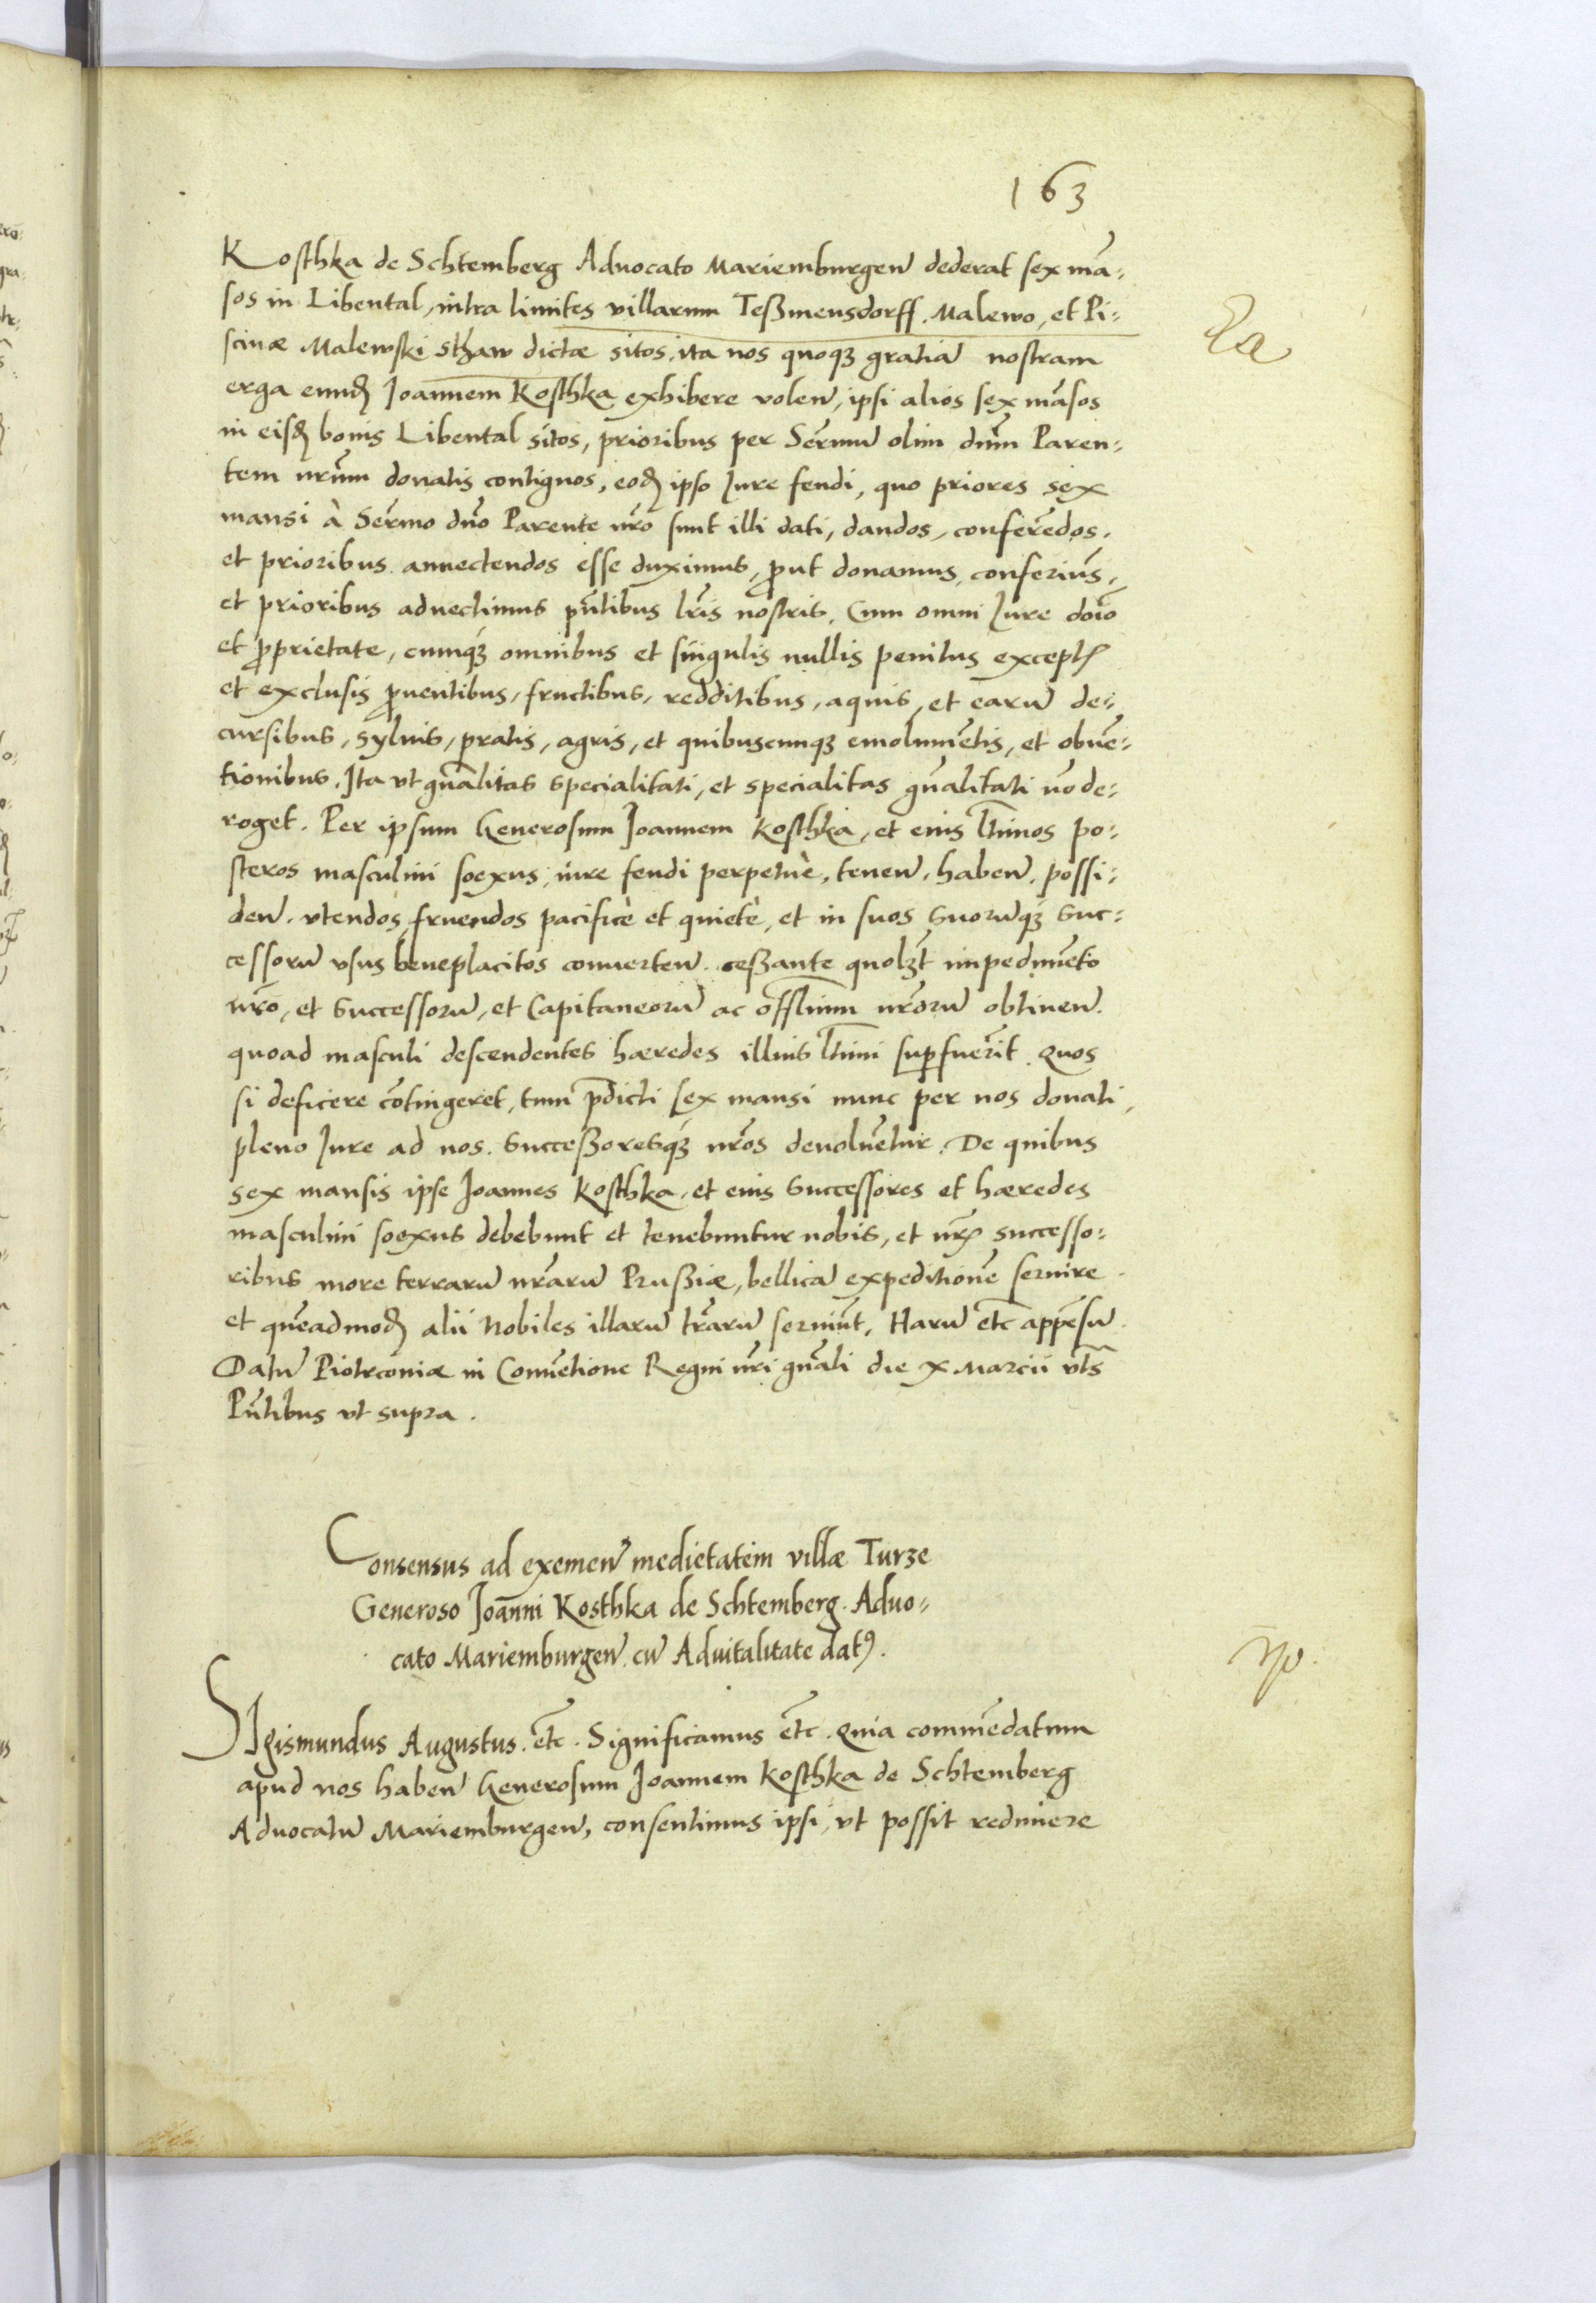 163
Kosthka de Schtemberg Aduocato Mariemburgen̄ dederat sex mā-
sos in Libental, intra limites villarum Teßmensdorff, Malewo, et Pi-
scinæ Malewski sthaw dictæ sitos, ita nos quoqꝫ gratiā nostram
erga eund̄ Joannem Kosthka exhibere volen̄, ipsi alios sex māsos
in eisd̄ bonis Libental sitos, prioribus per Sermū olim dnm̄ Paren-
tem nrūm donatis contiguos, eod̄ ipso Iure feudi, quo priores sex
mansi à Sermo dnō Parente nrō sunt illi dati, dandos, conferēdos,
et prioribus annectendos esse duximus, ꝓut donamus, conferim̄s,
et prioribus aduectimus pn̄tibus lrīs nostris. Cum omni Iure doīo
et ꝓprietate, cumqꝫ omnibus et singulis nullis penitus exceptꝭ
et exclusis ꝓuentibus, fructibus, redditibus, aquis, et earū de-
cursibus, syluis, pratis, agris, et quibuscunqꝫ emolumētis, et obuē-
tionibus. Ita vt gnālitas specialitati, et specialitas gnālitati nō de-
roget. Per ipsum Generosum Joannem Kosthka, et eius ltīmos po-
steros masculini soexus, iure feudi perpetuè, tenen̄, haben̄, possi-
den̄. vtendos fruendos pacificè et quietè, et in suos suorūqꝫ suc-
cessorū vsus beneplacitos conuerten̄. ceßante quolꝫt impedimēto
nrō, et successorū, et Capitaneorū ac offlium nrōrū obtinen̄.
quoad masculi descendentes hæredes illius ltīmi suꝑfuerīt. Quos
si deficere cōtingeret, tum p̄dicti sex mansi nunc per nos donati,
pleno Iure ad nos, succeßoresqꝫ nrōs deuoluētur. De quibus
sex mansis ipse Joannes Kosthka, et eius successores et hæredes
masculini soexus debebunt et tenebuntur nobis, et nrꝭ successo-
ribus more terrarū nrārū Prußiæ, bellicā expeditionē seruire
et quēadmod̄ alii Nobiles illarū trārū seruiūt. Harū etc̄ appēsū.
Datū Piotrconiæ in Conuētione Regni nrī gnāli die X Marcii vts̄
Pn̄tibus vt supra.
Consensus ad exemen̄ medietatem villæ Turze
Generoso Joāni Kosthka de Schtemberg Aduo-
cato Mariemburgen̄. cū Aduitalitate datꝰ.
SIgismundus Augustus. etc̄. Significamus etc̄. Quia commēdatum
apud nos haben̄ Generosum Joannem Kosthka de Schtemberg
Aduocatū Mariemburgen̄, consentimus ipsi, vt possit redimere